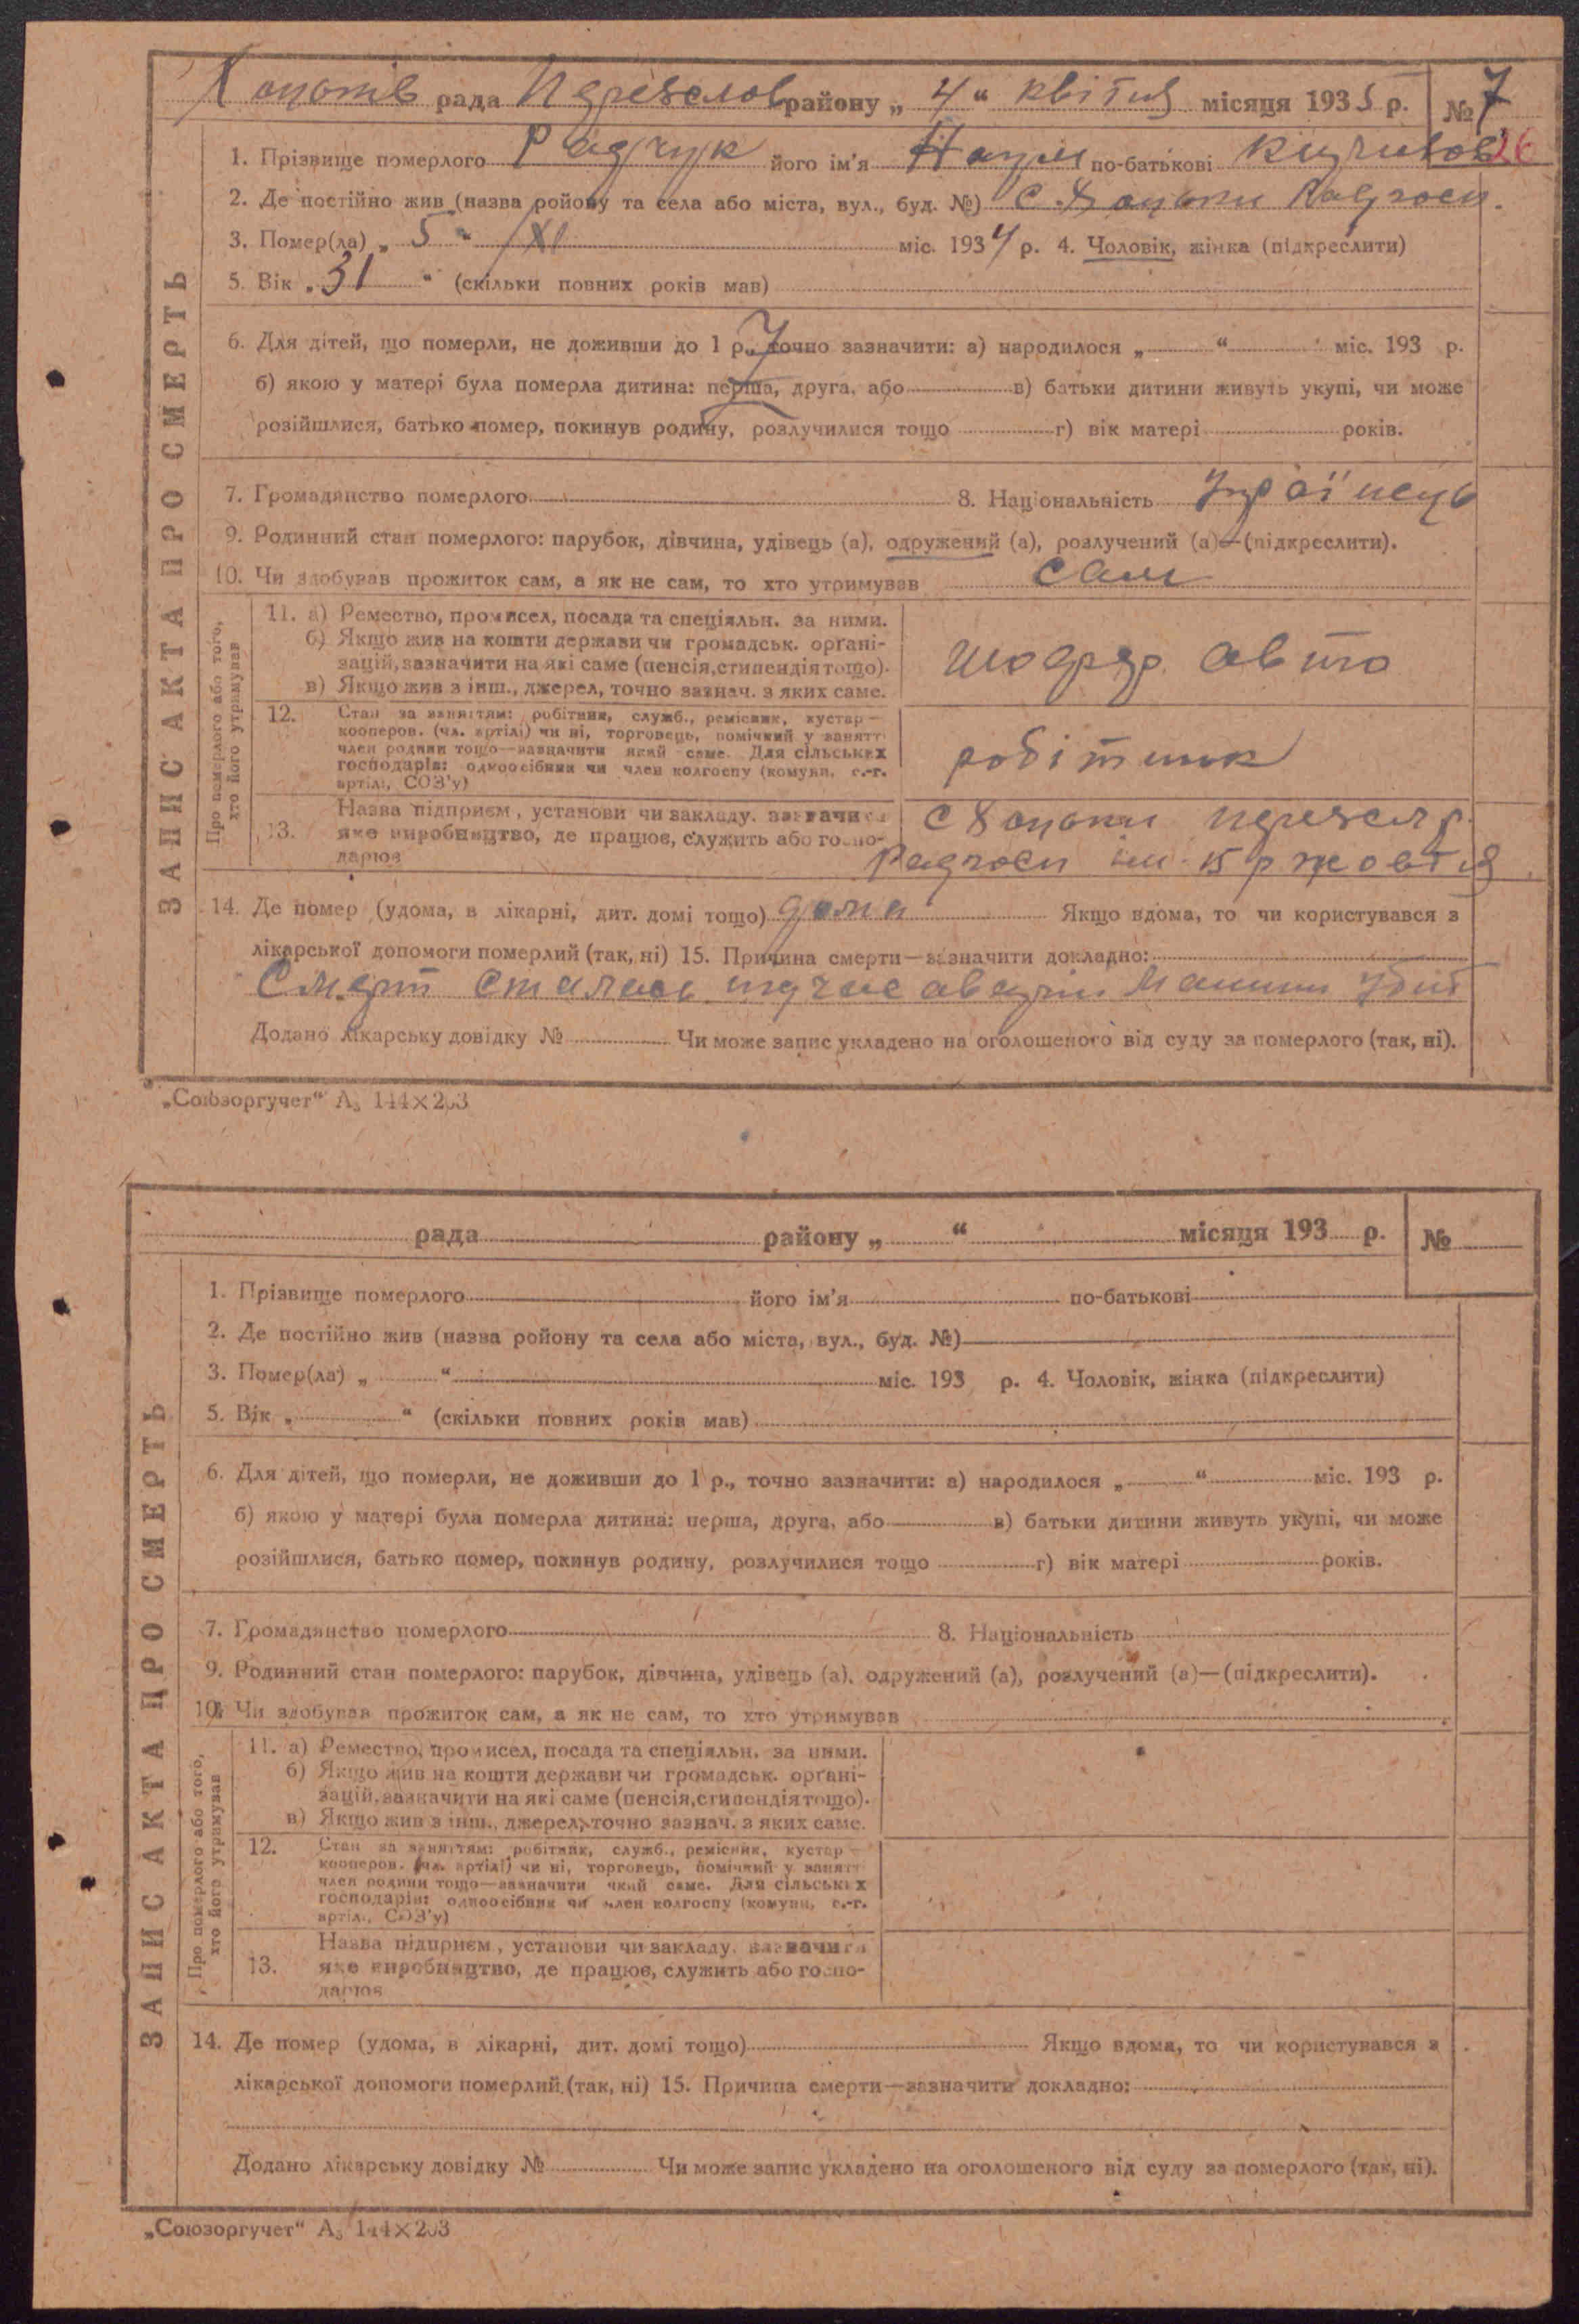 Хоцьків рада Переяслов району „ 4 “ квітня місяця 1935 р. № 7
26
1. Прізвище померлого Радчук його ім'я Наум по-батькові
2. Де постійно жив (назва ройону та села або міста, вул., буд. №) с. Хоцьки Радгосп.
3. Помер(ла) „ 5 “ XI міс. 1934 р. 4. Чоловік, жінка (підкреслити)
5. Вік „ 31 “ (скільки повних років мав)
6. Для дітей, що померли, не доживши до 1 р., точно зазначити: а) народилося „ “ міс. 193 р.
б) якою у матері була померла дитина: перша, друга, або в) батьки дитини живуть укупі, чи може
розійшлися, батько помер, покинув родину, розлучилися тощо г) вік матері років.
7. Громадянство померлого 8. Національність
9. Родинний стан померлого: парубок, дівчина, удівець (а), одружений (а), розлучений (а)—(підкреслити).
10. Чи здобував прожиток сам, а як не сам, то хто утримував сам
ЗАПИС АКТА ПРО СМЕРТЬ
Про померлого або того,
хто його утримував
11. а) Ремество, промисел, посада та спеціяльн. за ними.
б) Якщо жив на кошти держави чи громадськ. орґані-
зацій, зазначити на які саме (пенсія, стипендія тощо).
в) Якщо жив з інш., джерел, точно зазнач. з яких саме.
авто
12. Стан за заняттям: робітник, служб., ремісник, кустар—
кооперов. (чл. артілі) чи ні, торговець, помічний у занятт
член родини тощо—зазначити який саме. Для сільських
господарів: одноосібник чи член колгоспу (комуни, с.-г.
артілі, СОЗ'у)
робітник
13. Назва підприєм, установи чи закладу, зазначити
яке виробництво, де працює, служить або госпо-
дарює
с Хоцьки
Радгосп ім. 15 р жовтня
14. Де помер (удома, в лікарні, дит. домі тощо) дома Якщо вдома, то чи користувався з
лікарської допомоги померлий (так, ні) 15. Причина смерти—зазначити докладно:
Смерт сталась підчас аварії машини убит
Додано лікарську довідку № Чи може запис укладено на оголошеного від суду за померлого (так, ні).
„Союзоргучет“ А₅ 144×203
рада району „ “ місяця 193 р. №
1. Прізвище померлого його ім'я по-батькові
2. Де постійно жив (назва ройону та села або міста, вул., буд. №)
3. Помер(ла) „ “ міс. 193 р. 4. Чоловік, жінка (підкреслити)
5. Вік „ “ (скільки повних років мав)
6. Для дітей, що померли, не доживши до 1 р., точно зазначити: а) народилося „ “ міс. 193 р.
б) якою у матері була померла дитина: перша, друга, або в) батьки дитини живуть укупі, чи може
розійшлися, батько помер, покинув родину, розлучилися тощо г) вік матері років.
7. Громадянство померлого 8. Національність
9. Родинний стан померлого: парубок, дівчина, удівець (а), одружений (а), розлучений (а)—(підкреслити).
10. Чи здобував прожиток сам, а як не сам, то хто утримував
ЗАПИС АКТА ПРО СМЕРТЬ
Про померлого або того,
хто його утримував
11. а) Ремество, промисел, посада та спеціяльн. за ними.
б) Якщо жив на кошти держави чи громадськ. орґані-
зацій, зазначити на які саме (пенсія, стипендія тощо).
в) Якщо жив з інш., джерел, точно зазнач. з яких саме.
12. Стан за заняттям: робітник, служб., ремісник, кустар—
кооперов. (чл. артілі) чи ні, торговець, помічний у занятт
член родини тощо—зазначити який саме. Для сільських
господарів: одноосібник чи член колгоспу (комуни, с.-г.
артілі, СОЗ'у)
13. Назва підприєм, установи чи закладу, зазначити
яке виробництво, де працює, служить або госпо-
дарює
14. Де помер (удома, в лікарні, дит. домі тощо) Якщо вдома, то чи користувався з
лікарської допомоги померлий (так, ні) 15. Причина смерти—зазначити докладно:
Додано лікарську довідку № Чи може запис укладено на оголошеного від суду за померлого (так, ні).
„Союзоргучет“ А₅ 144×203